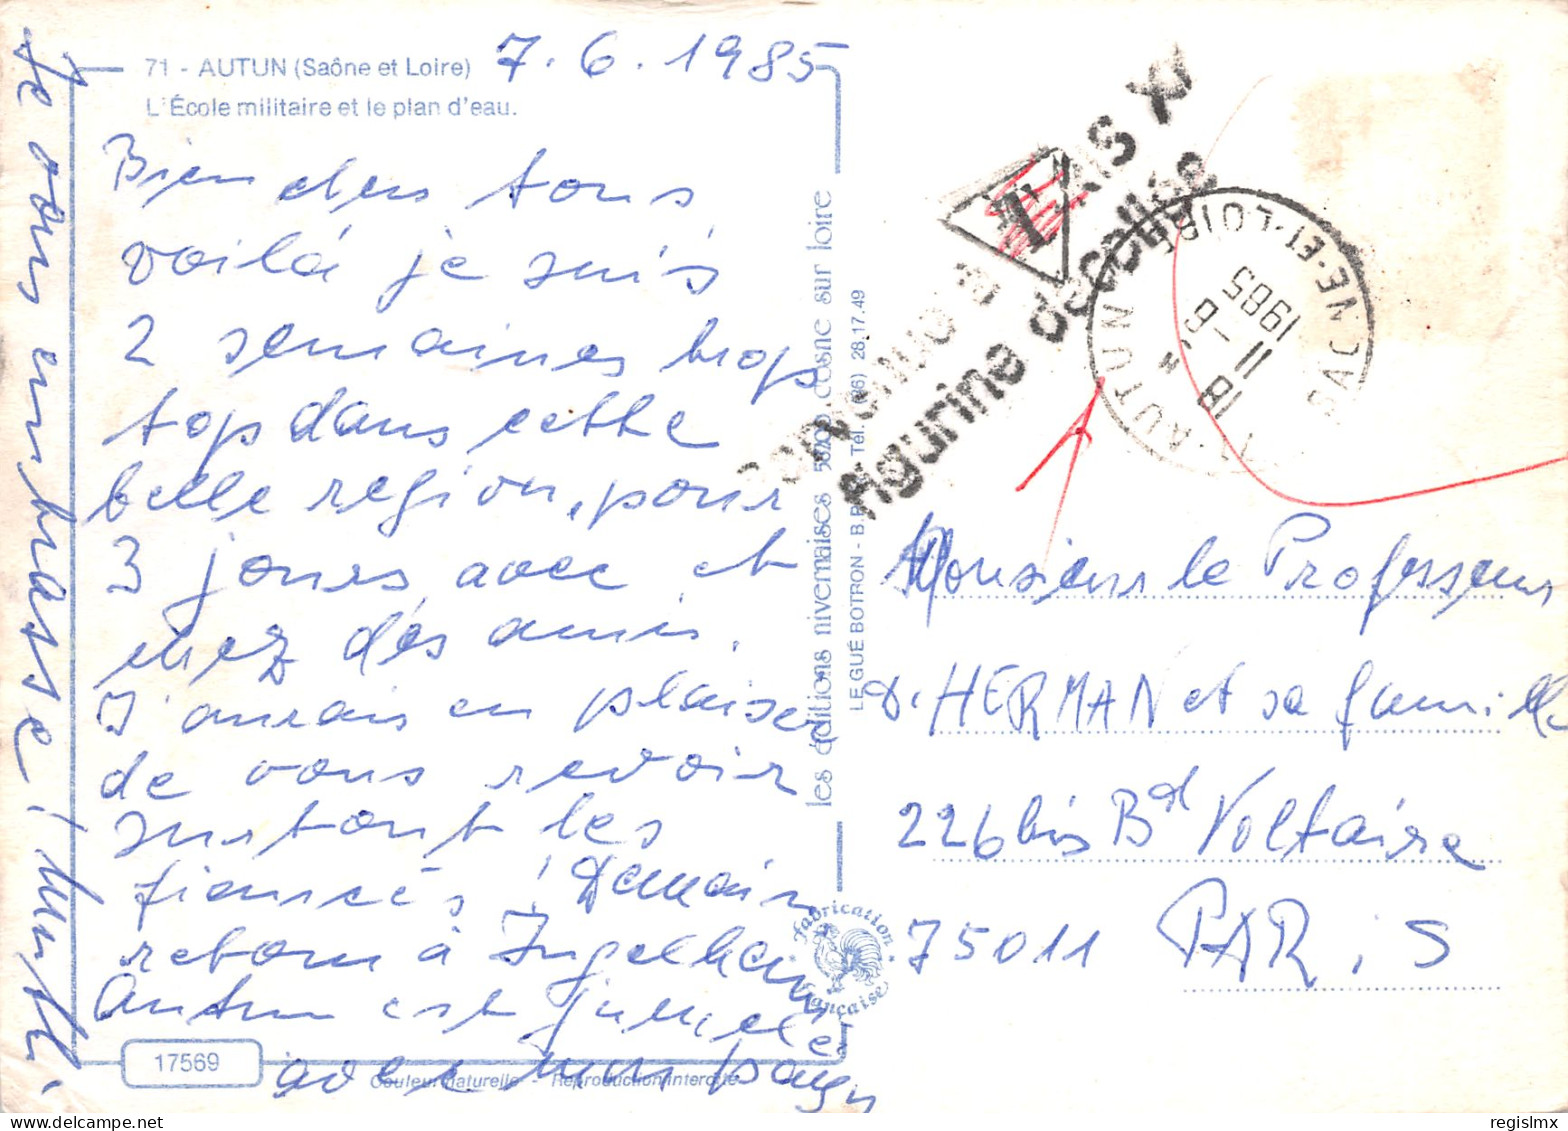 71 - AUTUN (Saône et Loire) 7.6.1985
L'École militaire et le plan d'eau.
Bien chers tous
voilà je suis
2 semaines trop
top dans cette
belle region, pour
3 jours avec et
chez des amis.
J'aurais eu plaiser
de vous revoir
surtout les
fiancés! Demain
retour à Ingelheim
Autun est jumelé
avec mon pays
Je vous embrasse!
17569
Couleur naturelle - Reproduction interdite
les éditions nivernaises 58200 cosne sur loire
LE GUÉ BOTRON - B.P. Tél. (86) 28.17.49
Fabrication Française
Parvenue à
T
figurine décollée
AUTUN
SAONE-ET-LOIRE
18 H
11 - 6
1985
Monsieur le Professeur
D. HERMAN et sa famille
226bis Bd Voltaire
75011 PARIS
regislmx